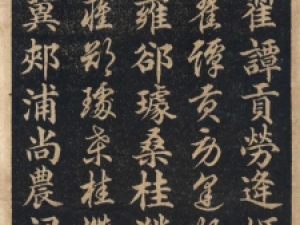 翟譚貢勞逄姬
翟譚貢勞逄姬
雍郤璩桑桂
雍郤璩桑桂
冀郟浦尚農